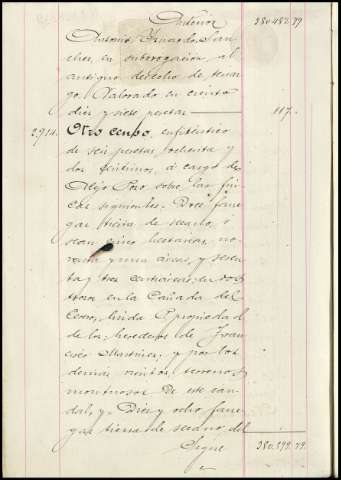 Anterior 380.482.79
Antonio Fajardo San-
chez, en subrogación al
antiguo derecho de terraz-
go. Valorado en ciento
diez y siete pesetas 117.
2.914. Otro censo, enfitéutico
de seis pesetas, ochenta y
dos céntimos, á cargo de
Alejo Poo sobre las fin-
cas siguientes: Doce fane-
gas tierra de secano, ó
sean cinco hectareas, no-
venta y una áreas, y sesen-
ta y tres centiáreas, en
en la Cañada del
Cerro, linda propiedad
de los herederos de Fran-
cisco Martinez; y por los
demas vientos, terrenos
montuosos de este cau-
dal, y Diez y ocho fane-
gas tierra de secano del
Sigue 380.599.79